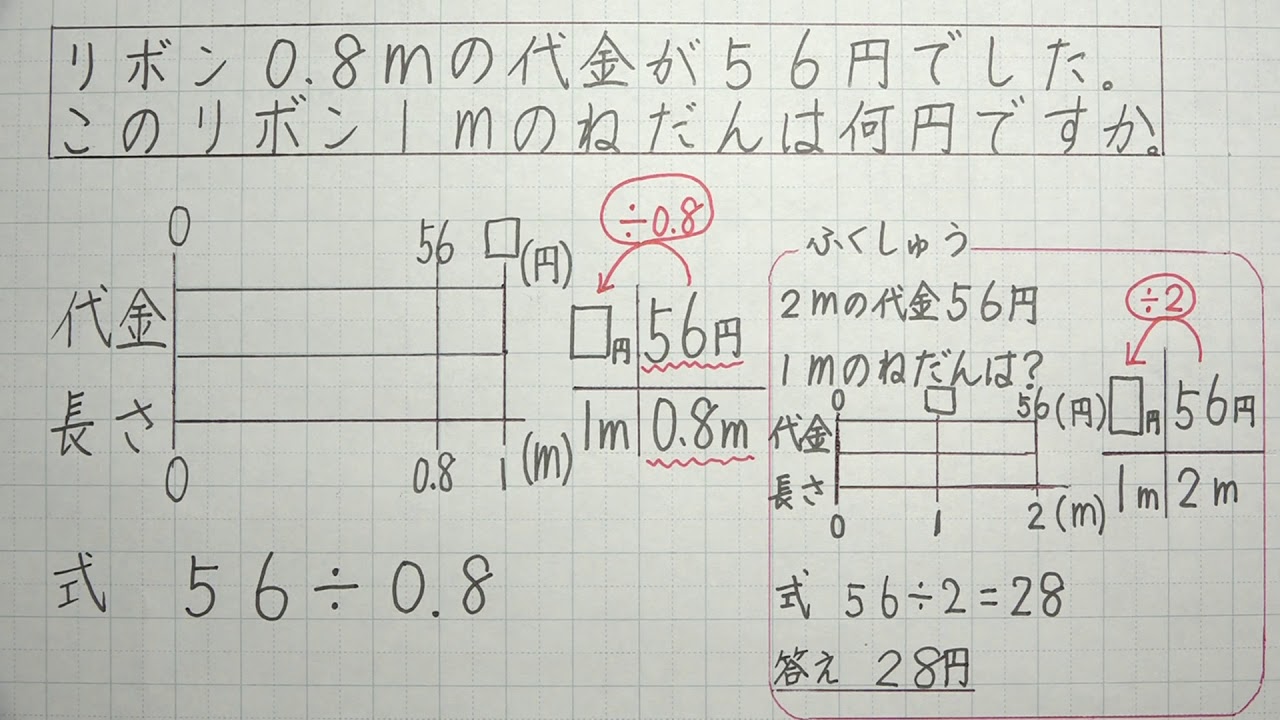 リボン0.8mの代金が56円でした。
このリボン1mのねだんは何円ですか。
0 56 □(円)
代金
長さ
0 0.8 1 (m)
÷0.8
□円 56円
1m 0.8m
式 56÷0.8
ふくしゅう
2mの代金56円
1mのねだんは?
0 □ 56(円)
代金
長さ
0 1 2(m)
÷2
□円 56円
1m 2m
式 56÷2=28
答え 28円